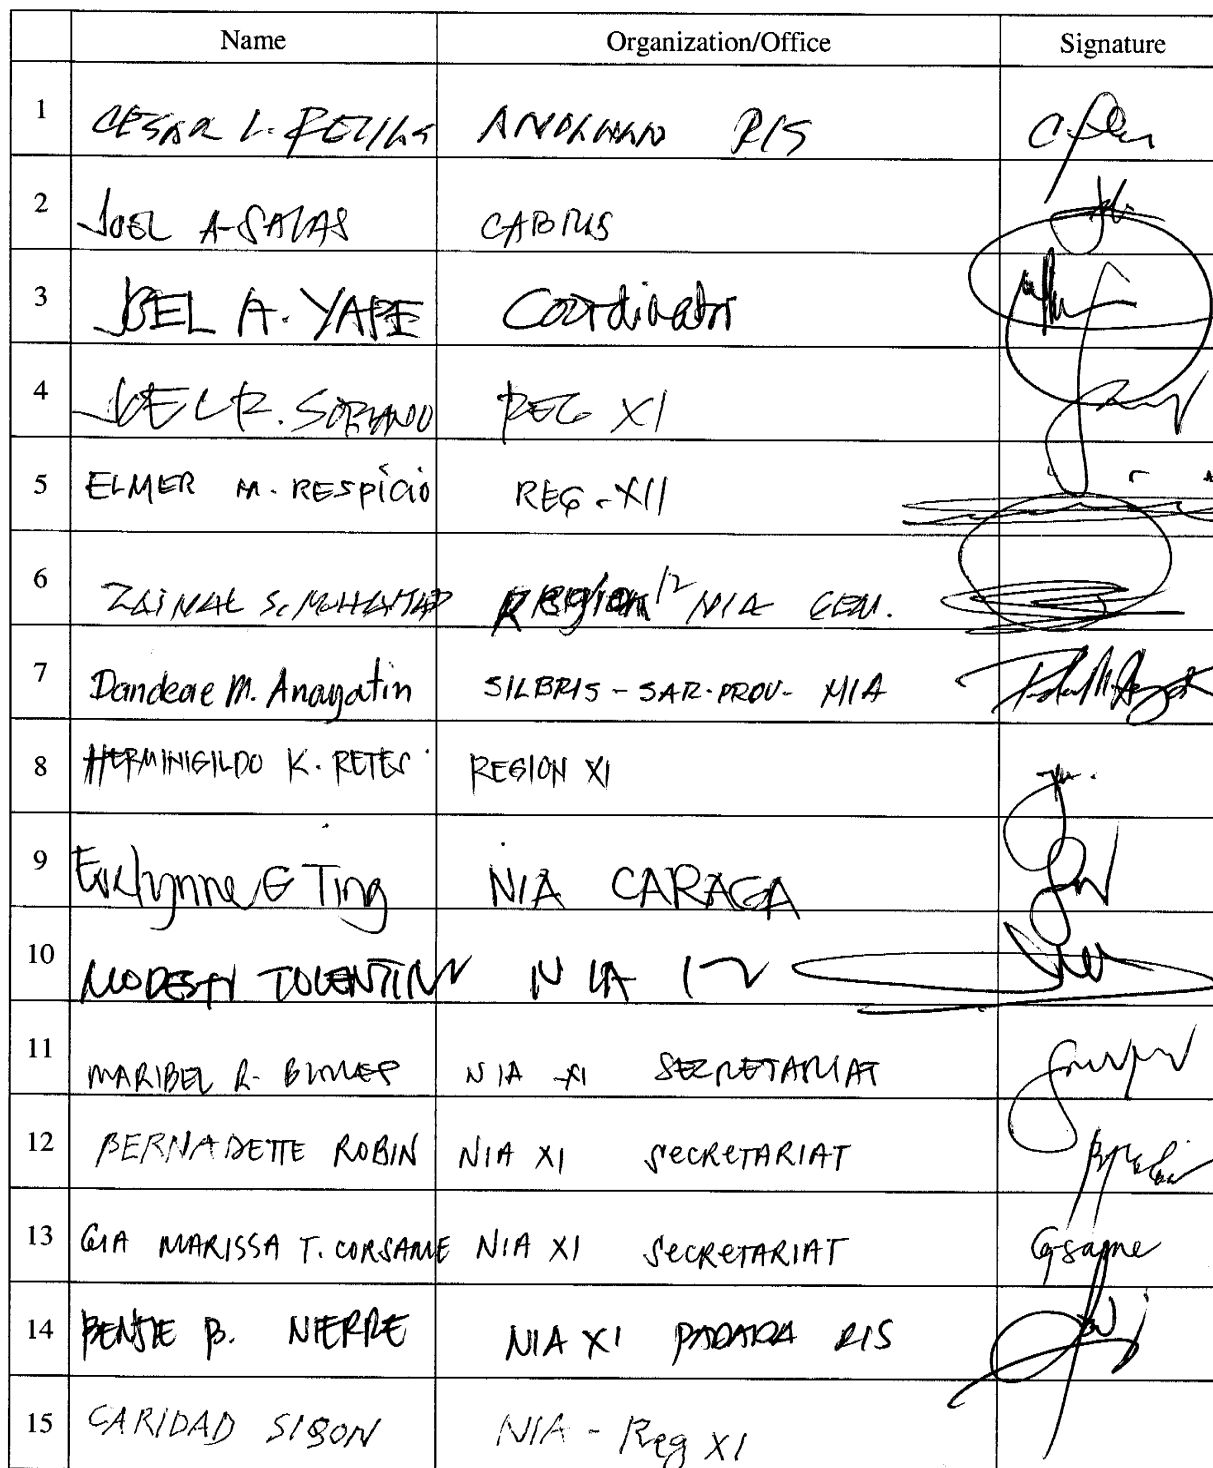 Name Organization/Office Signature
1 CESAR L. RIS
2 JOEL A. SALAS
3 JOEL A. YAPE Coordinator
4 JOEL R. SORIANO REG XI
5 ELMER M. RESPICIO REG. XII
6 ZAINAL S. Region 12 NIA
7 M. Anayatin SILBRIS - SAR. PROV. NIA
8 HERMINIGILDO K. RETES REGION XI
9 Evelynne G Ting NIA CARAGA
10 MODESTO TOLENTINO NIA 12
11 MARIBEL R. NIA XI SECRETARIAT
12 BERNADETTE ROBIN NIA XI SECRETARIAT
13 GIA MARISSA T. CORSAME NIA XI SECRETARIAT
14 BENJIE B. NIERRE NIA XI PADADA RIS
15 CARIDAD SIBON NIA - Reg XI